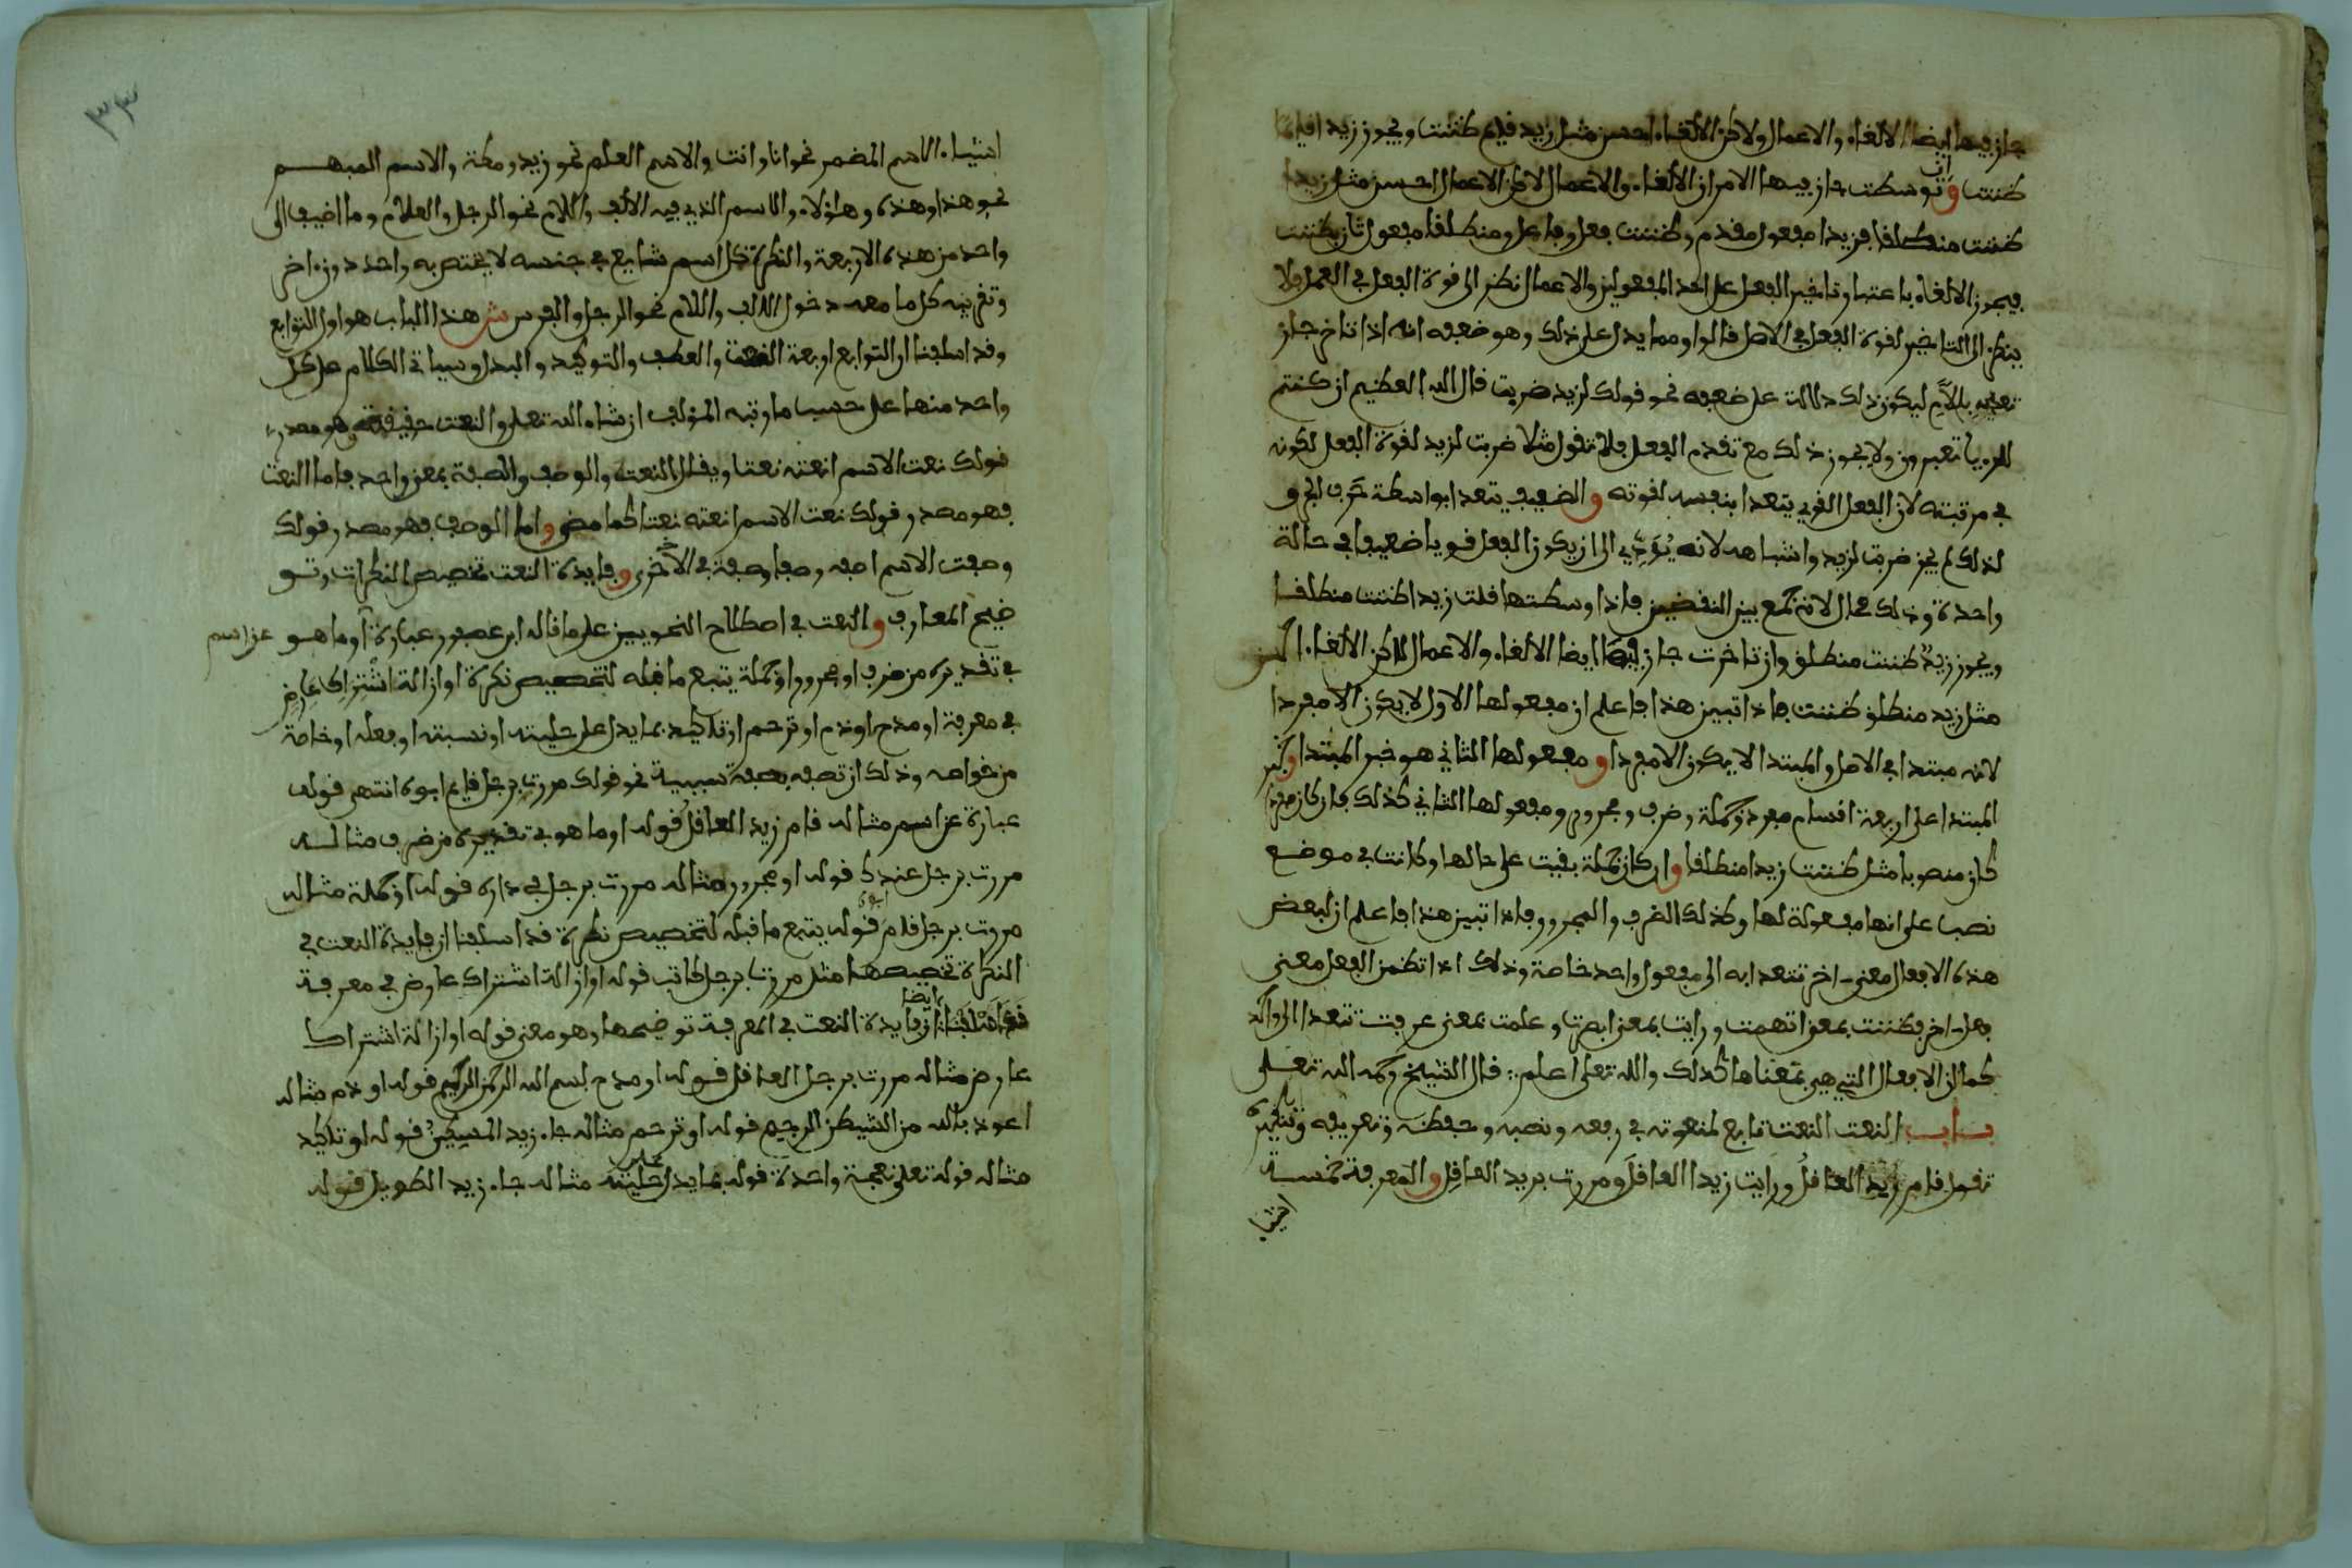 جاز فيها ايضا الالغاء والاعمال ولاكن الالغاء احسن مثل زيد قايم ظننت ويجوز زيدا قايما
ظننت وان توسطت جاز فيها الامران الالغاء والاعمال لاكن الاعمال احسن مثل زيدا
ظننت منطلقا فزيدا مفعول مقدم وظننت فعل وفاعل ومنطلقا مفعول ثان بظننت
فيجوز الالغاء باعتبار تاخير الفعل على احد المفعولين والاعمال نظر الى قوة الفعل في العمل ولا
ينظر الى التاخير لقوة الفعل في الاصل قالوا ومما يدل على ذلك وهو ضعفه انه اذا تاخر جاز
تعديه باللام ليكون ذلك دلالت على ضعفه نحو قولك لزيد ضربت قال الله العظيم ان كنتم
للرويا تعبرون ولا يجوز ذلك مع تقدم الفعل فلا تقول مثلا ضربت لزيد لقوة الفعل لكونه
في مرتبته لان الفعل القوي يتعدا بنفسه لقوته والضعيف يتعدا بواسطة حرف الجر و
لذلك لم يجز ضربت لزيد واشباهه لانه يُوَدِّي الى ان يكون الفعل قويا ضعيفا في حالة
واحدة وذلك محال لانه جمع بين النقضين فاذا وسطتها قلت زيدا ظننت منطلقا
ويجوز زيدٌ ظننت منطلق وان تاخرت جاز فيها ايضا الالغاء والاعمال لاكن الالغاء احسن
مثل زيد منطلق ظننت فاذا تبين هذا فاعلم ان مفعولها الاول لا يكون الا مفردا
لانه مبتدا في الاصل والمبتدا لا يكون الا مفردا و مفعولها الثاني هو خبر المبتدا وخبر
المبتدا على اربعة اقسام مفرد وجملة وضرف ومجرور ومفعولها الثاني كذلك فان كان مفردا
كان منصوبا مثل ظننت زيدا منطلقا وان كان جملة بقيت على حالها وكانت في موضع
نصب على انها مفعولة لها وكذلك الضرف والمجرور فاذا تبين هذا فاعلم ان لبعض
هذه الافعال معنى اخر تتعدا به الى مفعول واحد خاصة وذلك اذا تضمن الفعل معنى
فعل اخر فظننت بمعنى اتهمت ورايت بمعنى ابصرت وعلمت بمعنى عرفت تتعدا الى واحد
كما ان الافعال التي هي بمعناها كذلك والله تعلى اعلم :: قال الشيخ رحمه الله تعلى
باب النعت النعت تابع لمنعوته في رفعه ونصبه وخفظه وتعريفه وتنكيره
تقول قام زيد العاقلُ ورايت زيدا العاقلَ ومررت بزيد العاقلِ والمعرفة خمسة
اشيا
٣٣
اشياء الاسم المضمر نحو انا وانت والاسم العلم نحو زيد ومكة والاسم المبهم
نحو هذا وهذه وهاؤلاء والاسم الذي فيه الالف واللام نحو الرجل والغلام وما اضيف الى
واحد من هذه الاربعة والنكرة كل اسم شايع في جنسه لا يختص به واحد دون اخر
وتقريبه كل ما معه دخول الالف واللام نحو الرجل والفرس ش هذا الباب هو اول التوابع
وقد اسلفنا ان التوابع اربعة النعت والعطف والتوكيد والبدل وسياتي الكلام على كل
واحد منها على حسب ما رتبه المؤلف ان شاء الله تعلى والنعت حقيقته هو مصدر
قولك نعت الاسم انعته نعتا ويقال النعت والوصف والصفة بمعنى واحد فاما النعت
فهو مصدر قولك نعت الاسم انعته نعتا كما مضى واما الوصف فهو مصدر قولك
وصفت الاسم اصفه وصفا وصفة في الاخرى وفايدة النعت تخصيص النكرات وتو
ضيح المعارف والنعت في اصطلاح النحويين على ما قاله ابن عصفور عبارة عن اسم او ما هو
في تقديره من ضرف او مجرور او جملة يتبع ما قبله لتخصيص نكرة او ازالة اشْتِرَاك عارض
في معرفة او مدح او ذم او ترحم او تاكيد بما يدل على حليته او نسبته او فعله او خاصة
من خواصه وذلك ان تصفه بصفة سببية نحو قولك مررت برجل قايم ابوه انتهى قوله
عبارة عن اسم مثاله قام زيد العاقلُ قوله او ما هو في تقديره من ضرف مثاله
مررت برجل عندك قوله او مجرور مثاله مررت برجل في داره قوله او جملة مثاله
مررت برجل قام ابوه قوله يتبع ما قبله لتخصيص نكرة قد اسلفنا ان فايدة النعت في
النكرة تخصيصها مثل مررت برجل كاتب قوله او ازالة اشتراك عارض في معرفة
قد اسلفنا ايضا ان فايدة النعت في المعرفة توضيحها وهو معنى قوله او ازالة اشتراك
عارض مثاله مررت برجل العاقل قوله او مدح بسم الله الرحمن الرحيم قوله او ذم مثاله
اعوذ بالله من الشيطن الرجيم قوله او ترحم مثاله جاء زيد المسيكين قوله او تاكيد
مثاله قوله تعلى نعجة واحدة قوله بما يدل على حليته مثاله جاء زيد الطويل قوله